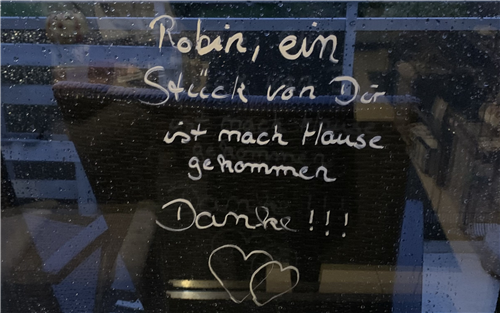 Robin, ein
Stück von Dir
ist nach Hause
gekommen
Danke!!!